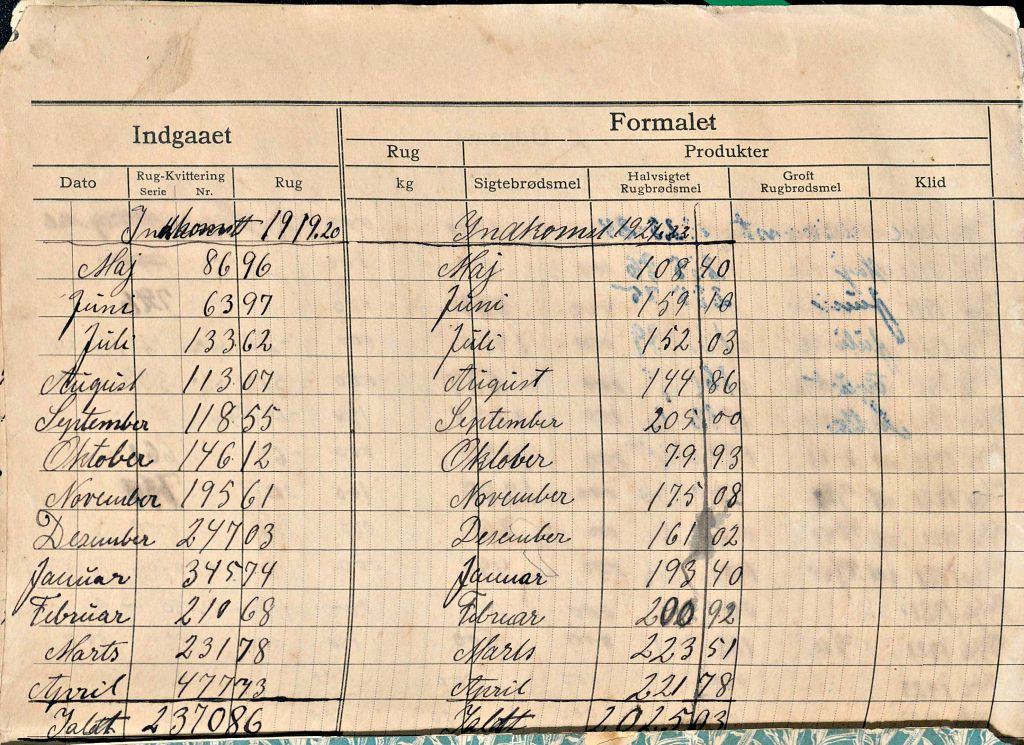 Indgaaet Formalet
Rug Produkter
Dato Rug-Kvittering Serie Nr. Rug kg Sigtebrødsmel Halvsigtet Rugbrødsmel Groft Rugbrødsmel Klid
Indkomst 1919.20 Indkomst
Maj 86 96 Maj 108 40
Juni 63 97 Juni 159 10
Juli 133 62 Juli 152 03
August 113 07 August 144 86
September 118 55 September 205 00
Oktober 146 12 Oktober 79 93
November 195 61 November 175 08
Desember 247 03 Desember 161 02
Januar 345 74 Januar 193 40
Februar 210 68 Februar 200 92
Marts 231 78 Marts 223 51
April 477 73 April 221 78
Ialdt 2370 86 Ialdt 2025 03